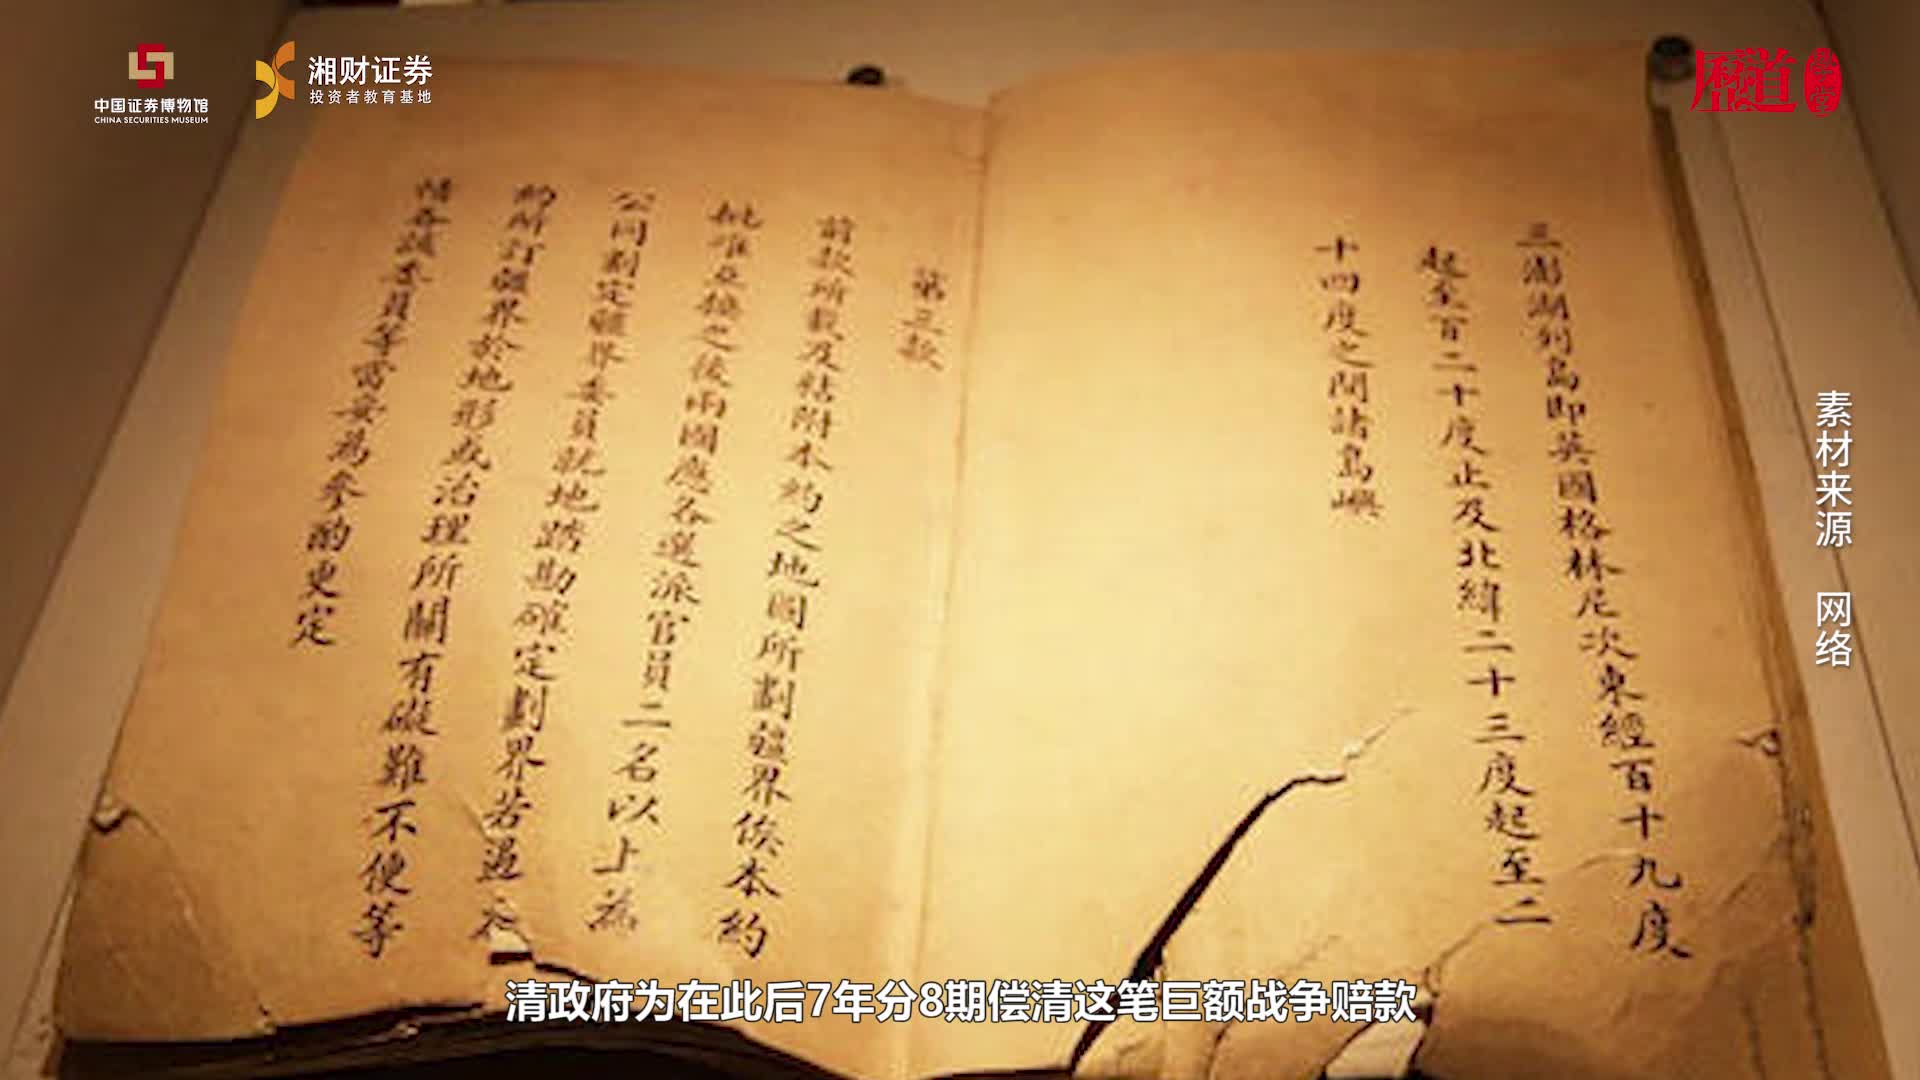 中国证券博物馆
CHINA SECURITIES MUSEUM
湘财证券
投资者教育基地
歷道
學堂
三澎湖列島即英國格林尼次東經百十九度
起至百二十度止及北緯二十三度起至二
十四度之間諸島嶼
第三款
前款所載及粘附本約之地圖所劃疆界俟本約
批准互換之後兩國應各選派官員二名以上為
公同劃定疆界委員就地踏勘確定劃界若遇本
約所訂疆界於地形或治理所關有礙難不便等
情各該委員等當妥為參酌更定
素材来源 网络
清政府为在此后7年分8期偿清这笔巨额战争赔款